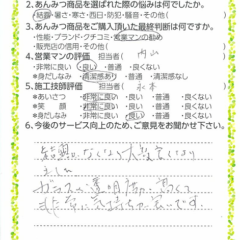 2.あんみつ商品を選ばれた際の悩みは何でしたか。
・結露・暑さ・寒さ・西日・防犯・騒音・その他( )
3.あんみつ商品をご購入頂いた最終判断は何ですか。
・性能・ブランド・クチコミ・営業マンの勧め
・販売店の信用・その他( )
4.営業マンの評価 担当者( 内山
・非常に良い・良い・普通・良くない
*身だしなみ 清潔感あり・普通・清潔感なし
5.施工技師評価 担当者(
*あいさつ ・非常に良い・良い・普通・良くない
*笑 顔 ・非常に良い・良い・普通・良くない
*身だしなみ ・非常に良い・良い・普通・良くない
6.今後のサービス向上のため、ご意見をお聞かせ下さい。
結露がなくなり大変
ました
ガラスが透明
非常に気持ちの良いです。